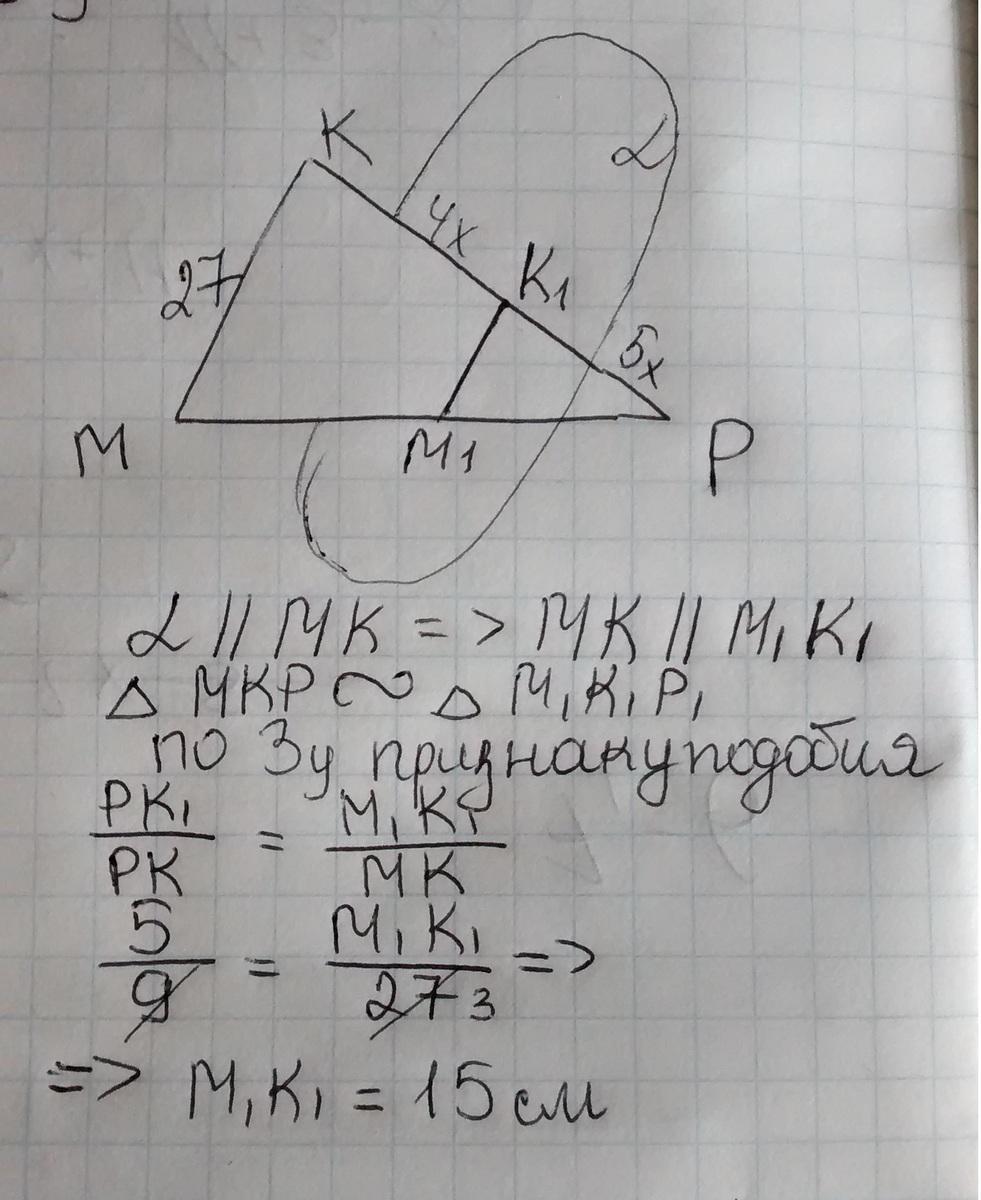 K
α
4x
27
K₁
5x
M
M₁
P
α // MK => MK // M₁K₁
△ MKP ∾ △ M₁K₁P₁
по 3у признаку подобия
PK₁/PK = M₁K₁/MK
5/9 = M₁K₁/27 3 =>
=> M₁K₁ = 15 см